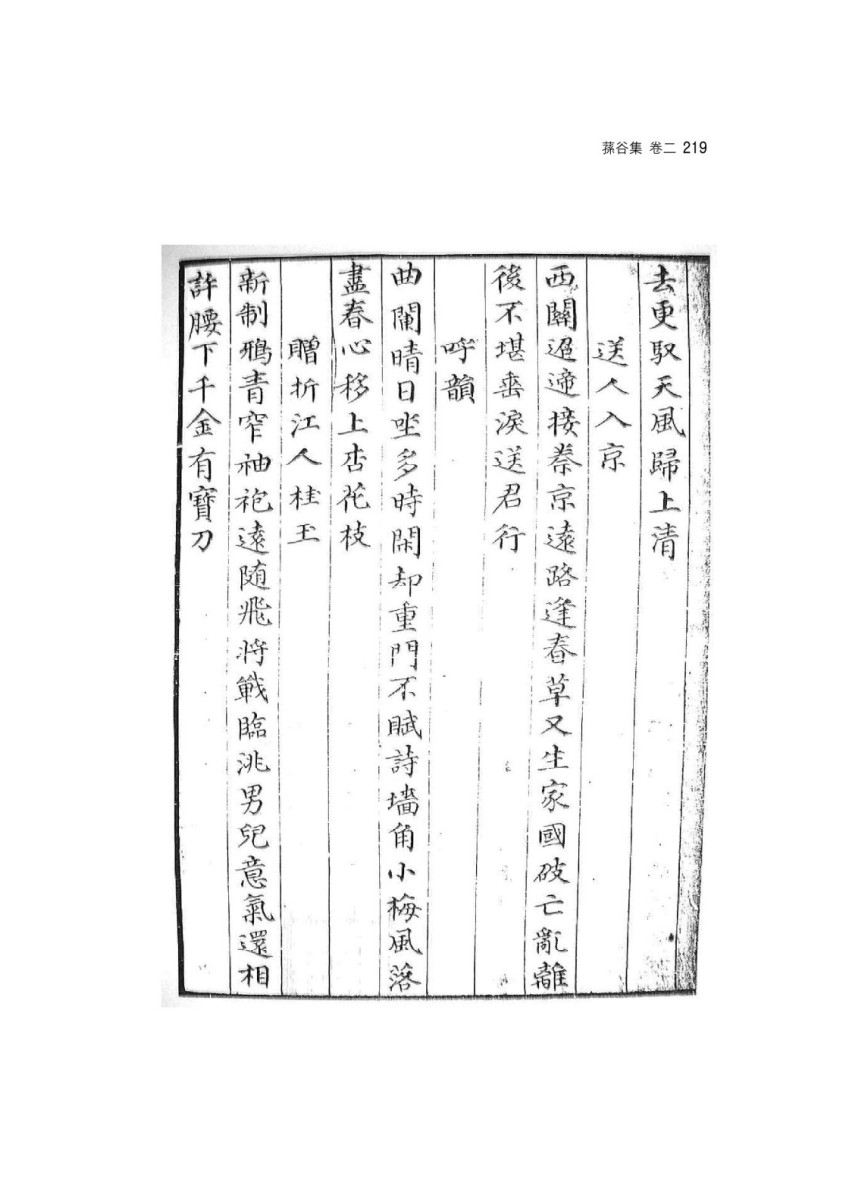 蓀谷集 卷二 219
去更馭天風歸上清
送人入京
西關迢遞接秦京遠路逢春草又生家國破亡亂離
後不堪垂淚送君行
呼韻
曲闌晴日坐多時閑却重門不賦詩墻角小梅風落
盡春心移上杏花枝
贈折江人桂玉
新制鴉青窄袖袍遠随飛將戰臨洮男兒意氣還相
許腰下千金有寶刀